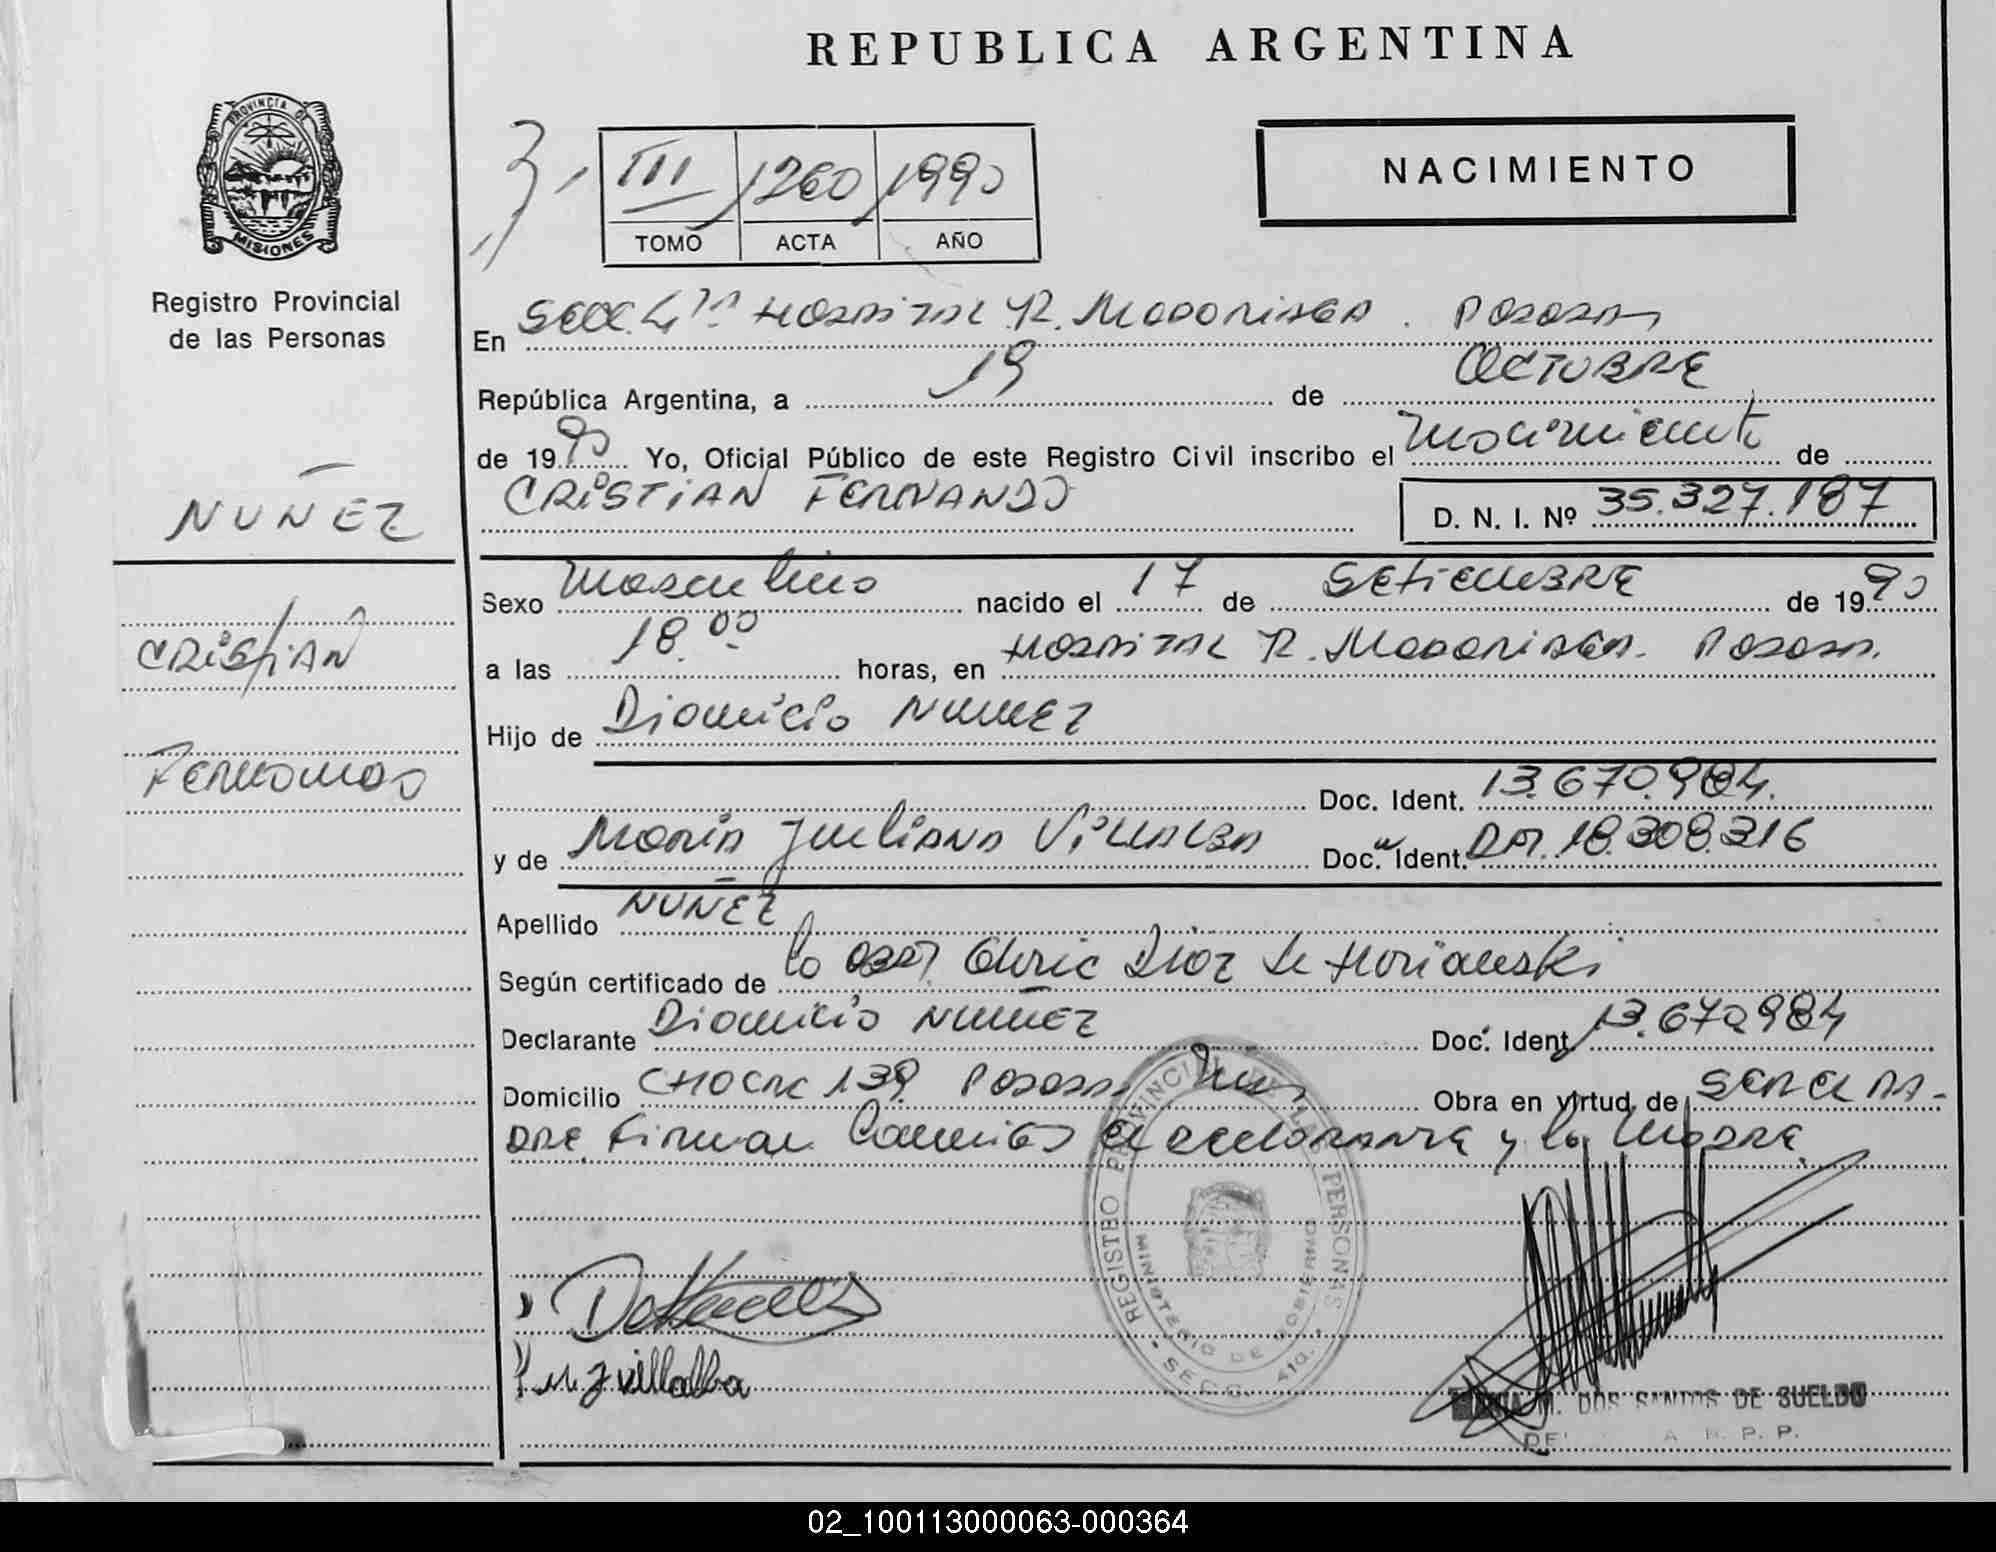 REPUBLICA ARGENTINA
PROVINCIA DE
MISIONES
Registro Provincial
de las Personas
III 1260 1990
TOMO ACTA AÑO
NACIMIENTO
En Secc. 4ta Hospital R. Madariaga. Posadas
República Argentina, a 19 de OCTUBRE
de 1990 Yo, Oficial Público de este Registro Civil inscribo el nacimiento de
CRISTIAN FERNANDO D. N. I. Nº 35.327.187
NUÑEZ
CRISTIAN
Fernando
Sexo Masculino nacido el 17 de SETIEMBRE de 1990
a las 18.00 horas, en Hospital R. Madariaga. Posadas.
Hijo de Dionicio Nuñez
Doc. Ident. 13.670.984.
y de Maria Juliana Villalba Doc. Ident. 18.308.316
Apellido NUÑEZ
Según certificado de la Obst. Diaz de
Declarante Dionicio Nuñez Doc. Ident. 13.670.984
Domicilio 139 Posadas Mns Obra en virtud de SER EL PA-
DRE. Firman Conmigo el declarante y la Madre.
REGISTRO PROVINCIAL DE LAS PERSONAS
MINISTERIO DE GOBIERNO
M J villalba
M. DOS SANTOS DE SUELDO
R. P. P.
02_100113000063-000364